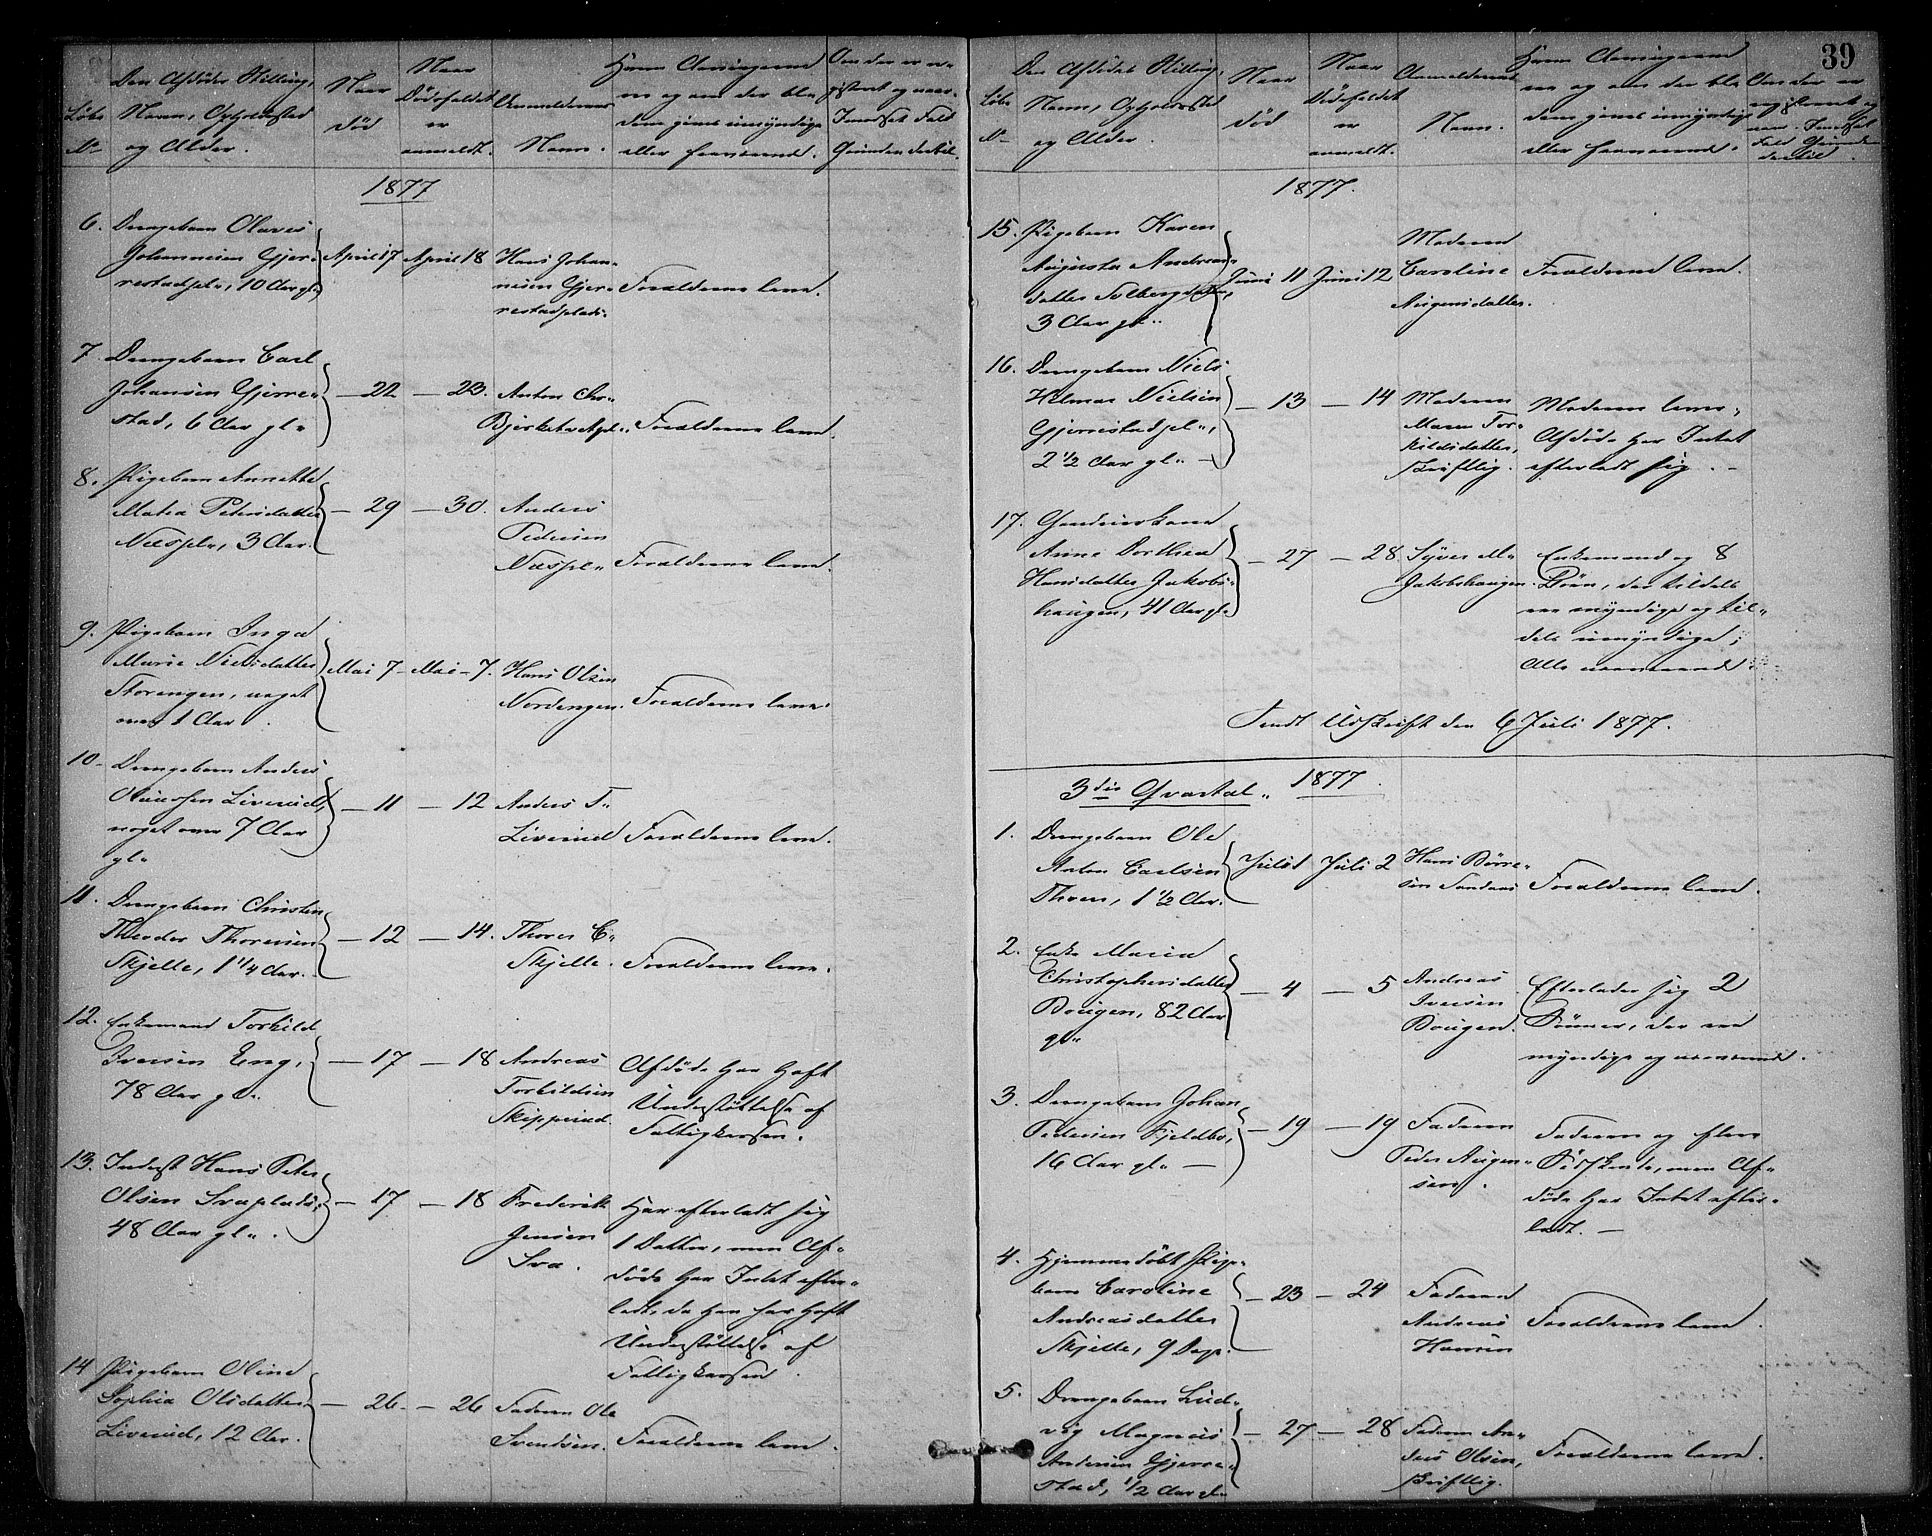 39
Løbe
No
Den Afdødes Stilling,
Navn, Opholdssted
og Alder.
Naar
død
Naar
Dødsfaldet
er
anmeldt.
Anmelderens
Navn.
Hvem Arvingerne
ere og om der bla
dem gives umyndige
eller fraværende.
Om der er re-
gistreret og naar.
I modsat Fald
Grunden dertil.
1877
6. Drengebarn Olaves
Johannesen Gjer-
restadpl., 10 Aar gl.
April 17
April 18
Hans Johan-
nesen Gjer-
restadplads.
Forældrene leve.
7. Drengebarn Carl
Johansen Gjerre-
stad, 6 Aar gl.
— 22
— 23.
Anton Chr.
Bjerketvedtpl.
Forældrene leve.
8. Pigebarn Annette
Matea Petersdatter
Næspl., 3 Aar.
— 29
— 30.
Anders
Pedersen
Næspl.
Forældrene leve.
9. Pigebarn Inga
Marie Nielsdatter
Storengen, noget
over 1 Aar.
Mai 7
Mai 7.
Hans Olsen
Nordengen.
Forældrene leve.
10. Drengebarn Anders
Olaussen Liverud,
noget over 7 Aar
gl.
— 11
— 12
Anders T.
Liverud
Forældrene leve.
11. Drengebarn Christen
Theodor Thoresen
Skjelle, 1 1/4 Aar.
— 12
— 14.
Thorer C.
Skjelle.
Forældrene leve.
12. Enkemand Torkild
Iversen Eng,
78 Aar gl.
— 17
— 18
Andreas
Torkildsen
Skipperud.
Afdøde har havt
Understøttelse af
Fattigkassen.
13. Inderst Hans Peter
Olsen Svaplads,
48 Aar gl.
— 17
— 18
Frederik
Jensen
Sva.
Har efterladt sig
1 Datter, men Af-
døde har Intet efter-
ladt, da han har havt
Understøttelse af
Fattigkassen.
14 Pigebarn Oline
Sophia Olsdatter
Liverud, 12 Aar.
— 26.
— 26
Faderen Ole
Svendsen.
Forældrene leve.
Løbe
No
Den Afdødes Stilling,
Navn, Opholdssted
og Alder.
Naar
død
Naar
Dødsfaldet
er
anmeldt.
Anmelderens
Navn.
Hvem Arvingerne
ere og om der bla
dem gives umyndige
eller fraværende.
Om der er
registreret og
naar. I modsat
Fald Grunden
dertil.
1877.
15. Pigebarn Karen
Augusta Andreas-
datter Solbergdalen,
3 Aar gl.
Juni 11
Juni 12
Moderen
Caroline
Augensdatter.
Forældrene leve.
16. Drengebarn Niels
Helmar Nielsen
Gjerrestadpl.,
2 1/2 Aar gl. —
— 13
— 14
Moderen
Maren Tor-
kildsdatter,
skriftlig.
Moderen lever,
Afdøde har Intet
efterladt sig. —
17. Gaardmandskone
Anne Dorthea
Hansdatter Jakobs-
haugen, 41 Aar gl.
— 27
— 28.
Syver M.
Jakobshaugen.
Enkemand og 8
Børn, der tildels
ere myndige og til-
dels umyndige;
Alle nærværende.
Sendt Udskrift den 6 Juli 1877.
3die Qvartal. 1877.
1. Drengebarn Ole
Anton Carlsen
Thoen, 1 1/2 Aar.
Juli 1
Juli 2
Hans Børre-
sen Sandaas
Forældrene leve.
2. Enke Maria
Christophersdatter
Bougen, 82 Aar
gl.
— 4
— 5
Andreas
Iversen
Bougen.
Efterlader sig 2
Sønner, der ere
myndige og nærværende.
3. Drengebarn Johan
Pedersen Fjeldbo,
16 Aar gl. —
— 19
— 19
Faderen
Peder Augen-
sen.
Faderen og flere
Sødskende, men Af-
døde har Intet efter-
ladt. —
4. Hjemmedøbt Pige-
barn Caroline
Andreasdatter
Skjelle, 9 Dage.
— 23
— 24
Faderen
Andreas
Hansen
Forældrene leve.
5. Drengebarn Lud-
vig Magnus
Andersen Gjerre-
stad, 1/2 Aar gl.
— 27
— 28
Faderen An-
ders Olsen,
skriftlig.
Forældrene leve.